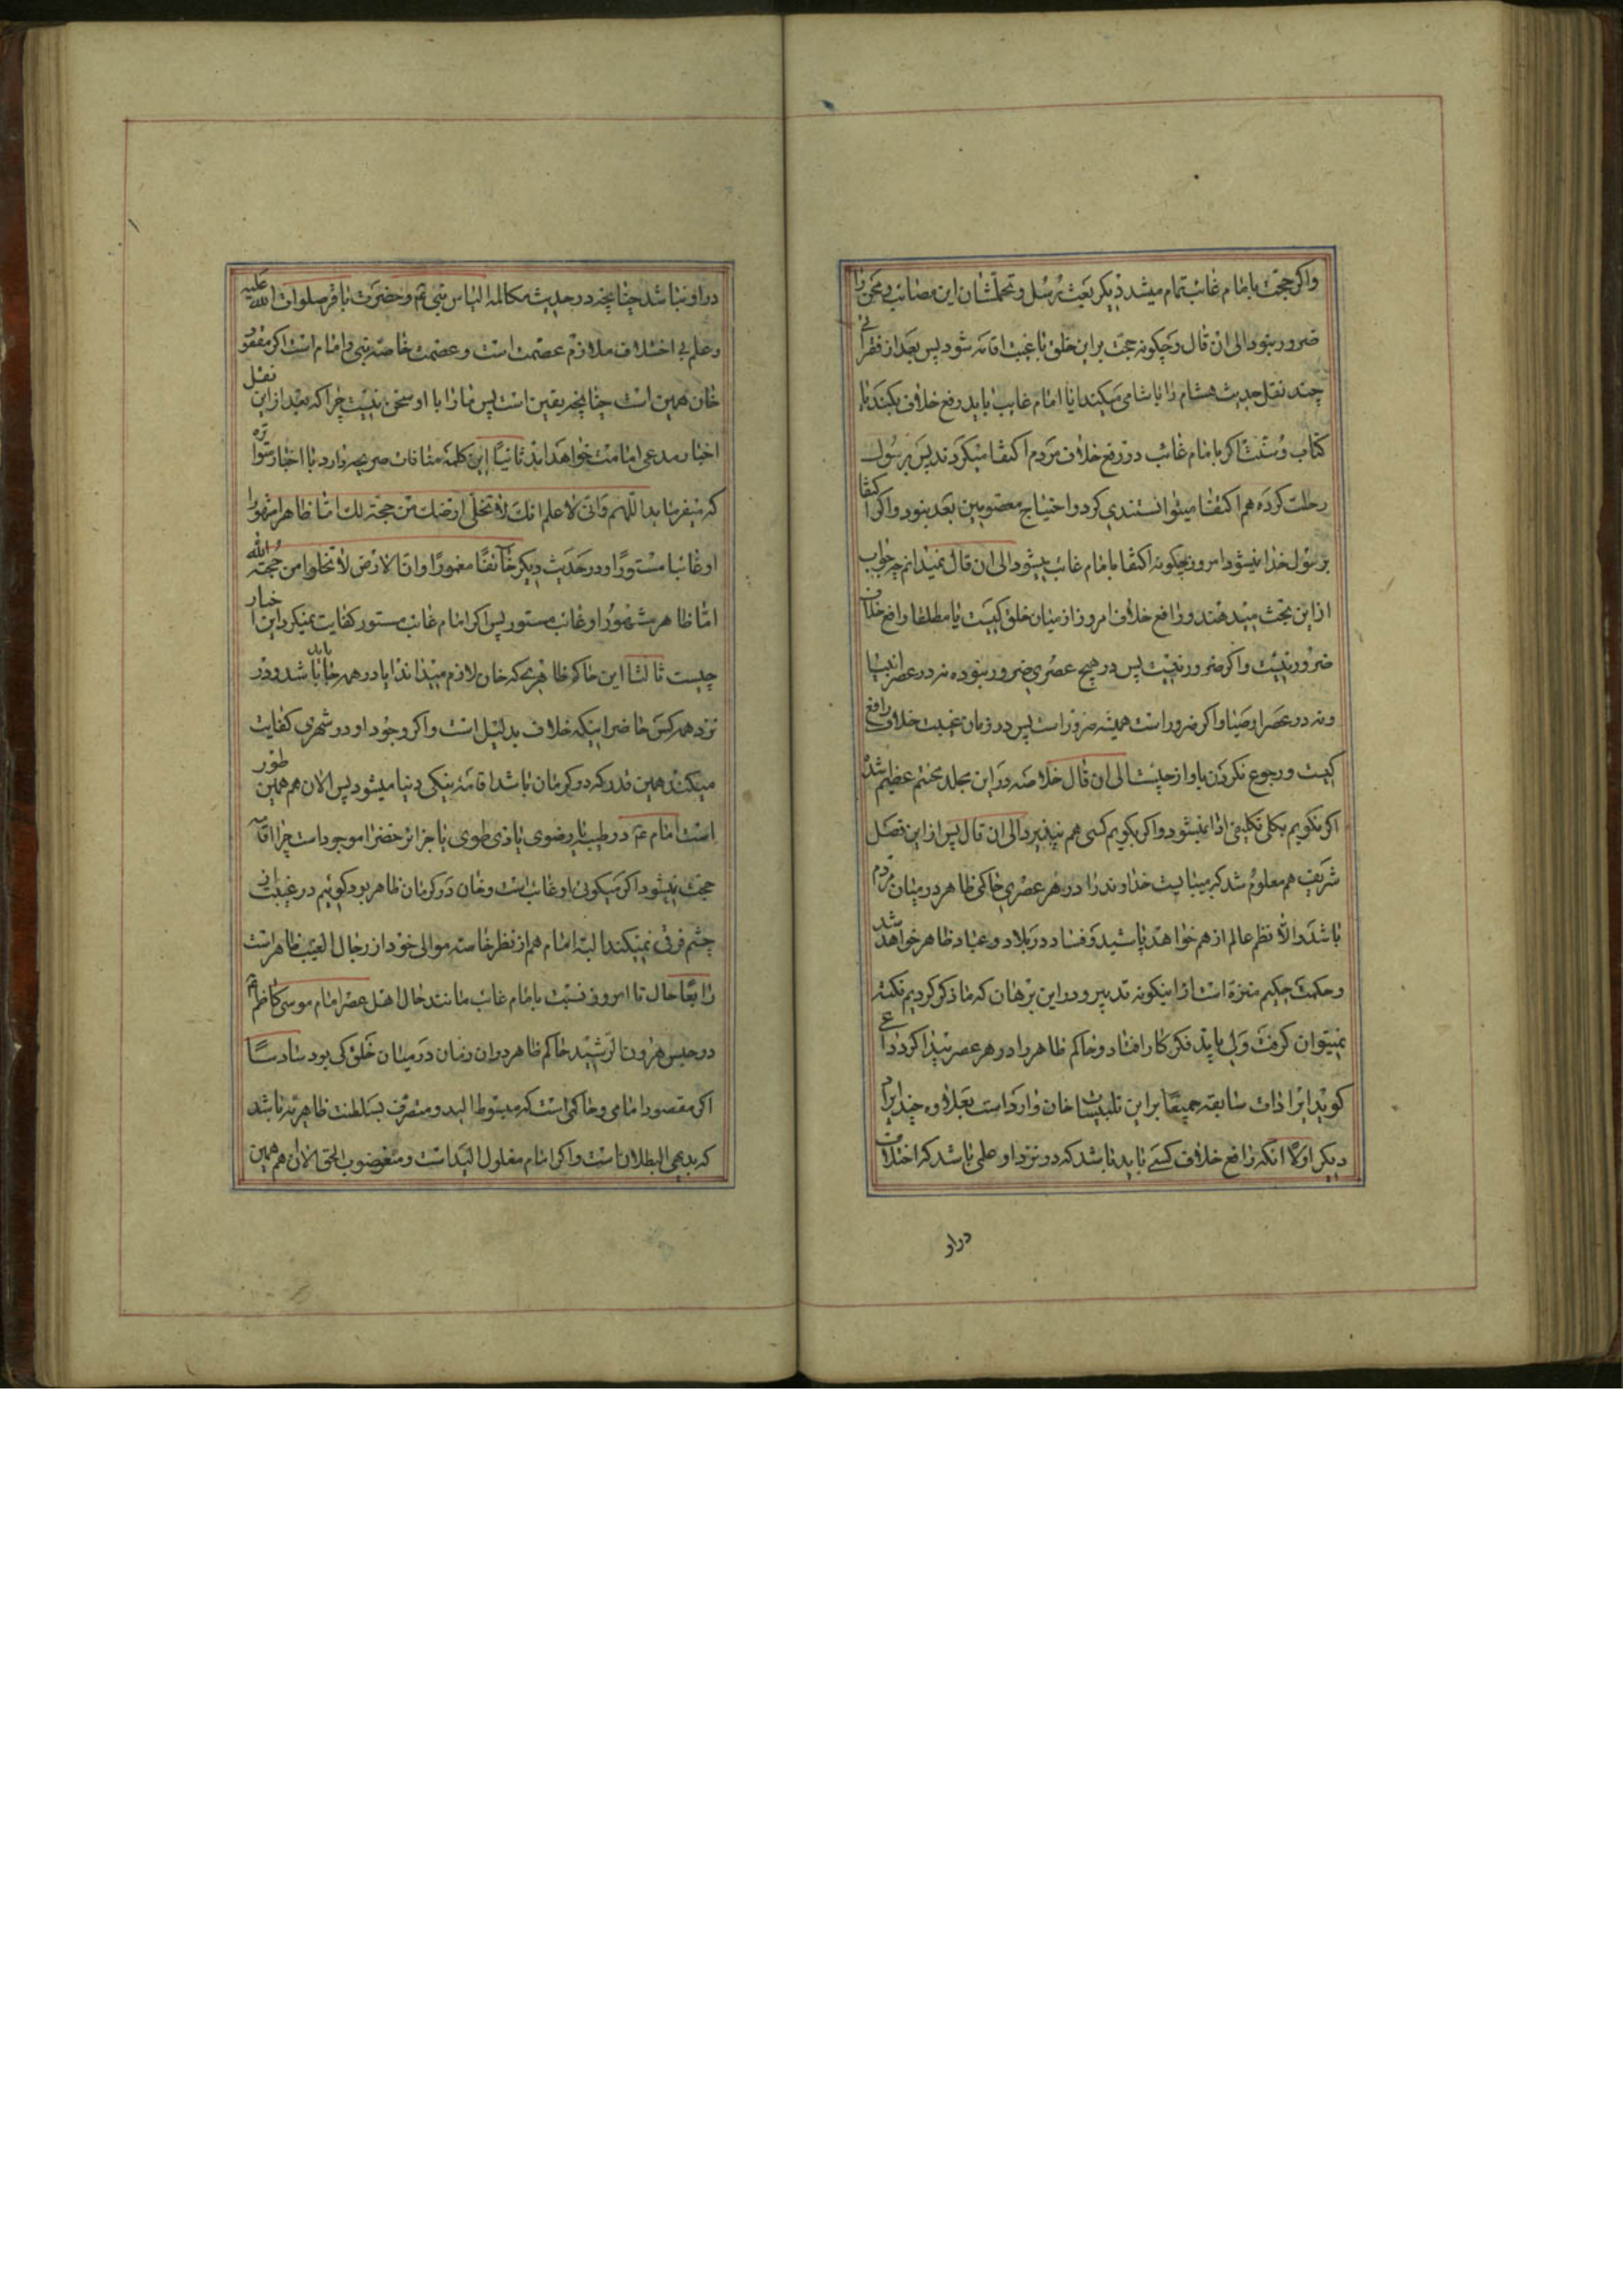 واکر حجت بامام غائب تمام میشد دیکر بعث رسل و تحملشان این مصائب و محن را
ضرور نبود الی ان قال و چکونه حجت بر این خلق با غیبت اقامه شود پس بعد از فقراتی
چند نقل حدیث هشام را با شامی میکند ایا امام غایب باید رفع خلاف بکند یا
کتاب و سنت اکر بامام غائب در رفع خلاف مردم اکتفا میکردند پس برسول
رحلت کرده هم اکتفا میتوانستندی کرد و احتیاج بمعصومین بعد نبود و اکر اکتفا
برسول خدا نمیشود امروز چکونه اکتفا بامام غائب میشود الی ان قال نمیدانم چه جواب
از این بحث میدهند و رافع خلاف امروز از میان خلق کیست یا مطلقا رافع خلاف
ضرور نیست و اکر ضرور نیست پس در هیچ عصری ضرور نبوده نه در عصر انبیا
و نه در عصر اوصیا و اکر ضرور است همیشه ضرور است پس در زمان غیبت رافع خلاف
کیست و رجوع نکردن باو از چیست الی ان قال خلاصه در این مجلد محنتم عظیم شده
اکر نکویم بکلی تکلیفی ادا نمیشود و اکر بکویم کسی هم نپذیرد الی ان قال پس از این فصل
شریف هم معلوم شد که میبایست خداوند را در هر عصری حاکمی ظاهر در میان مردم
باشد و الا نظم عالم از هم خواهد پاشید و فساد در بلاد و عباد ظاهر خواهد شد
و حکمت حکیم منزه است از اینکونه تدبیر و در این برهان که ما ذکر کردیم نکته
نمیتوان کرفت ولی باید فکر کار افتاد و حاکم ظاهر را در هر عصر پیدا کرد راعی
کوید ایرادات سابقه جمیعا بر این تلبیسات خان وارد است بعلاوه چند ایراد
دیکر اولا انکه رافع خلاف کسی باید باشد که در نزد او علمی باشد که اختلاف
دراو
در او نباشد چنانچه در حدیث مکالمه الیاس نبی ع و حضرت باقر صلوات الله علیه
و علم بی اختلاف ملازم عصمت است و عصمت خاصه نبی و امام است اکر مقصود
خان همین است چنانچه یقین است پس ما را با او سخنی نیست چرا که بعد از این نقل
اخبار مدعی امامت خواهد بد ثانیا این کلمه منافات صریحه دارد با اخبار متواتره
که میفرماید اللهم و انی لاعلم انک لا تخلی ارضک من حجة لک اما ظاهرا مشهورا
او غائبا مستورا و در حدیث دیکر خائفا مغمورا و ان الارض لا تخلوا من حجة الله
اما ظاهر مشهور او غائب مستور پس اکر امام غائب مستور کفایت نمیکرد این اخبار
چیست ثالثا این حاکم ظاهری که خان لازم میداند ایا در همه جا باید باشد و در
نزد همه کس حاضر اینکه خلاف بدلیل است و اکر وجود او در شهری کفایت
میکند و همین قدر که در کرمان باشد اقامه نیکی دنیا میشود پس الان هم همین طور
است امام ع در طیبه یا رضوی یا ذی طوی یا جزائر خضرا موجود است چرا اقامه
حجت نمیشود اکر میکوئی او غائب است و خان در کرمان ظاهر بود کوئیم در غیبت از
چشم فرقی نمیکند البته امام هم از نظر خاصه موالی خود از رجال الغیب ظاهر است
رابعا حال تا امروز نسبت بامام غائب مانند حال اهل عصر امام موسی کاظم ع
در حبس هارون الرشید حاکم ظاهر در ان زمان در میان خلق کی بود سادسا
اکر مقصود امامی و حاکمی است که مبسوط الید و متصرف بسلطنت ظاهریه باشد
که بدیهی البطلان است و اکر امام مغلول الید است و مغضوب الحق الان هم همین